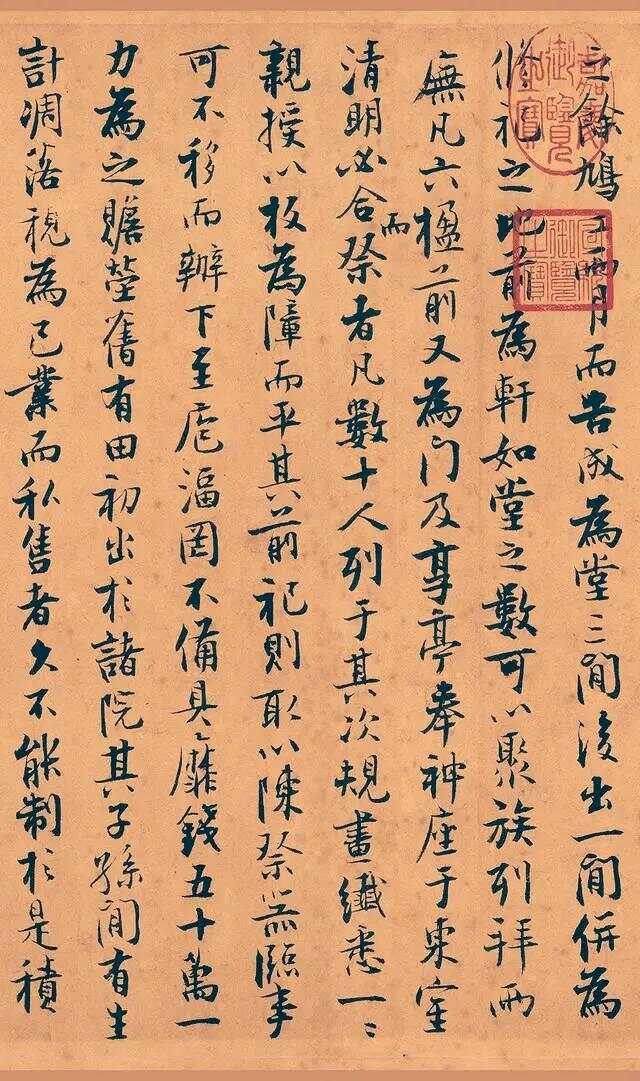 之餘鳩工兩月而告成為堂三間後出一間併為
修祀之地前為軒如堂之數可以聚族列拜兩
廡凡六楹前又為門及享亭奉神座于東室
清明必合而祭者凡數十人列于其次規畫纖悉一一
親授以板為障而平其前祀則取以陳祭器臨事
可不移而辦下至庖湢罔不備具靡錢五十萬一
力為之贍塋舊有田初出於諸院其子孫間有生
計凋落視為己業而私售者久不能制於是積
嘉慶御覽之寶
御覽之寶